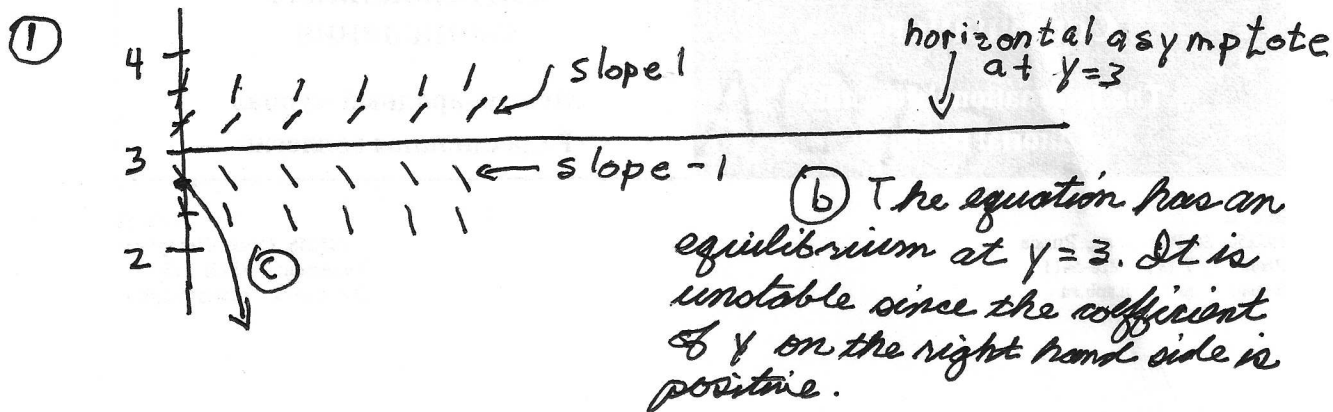 ①
4
3
2
slope 1
horizontal asymptote
at y=3
slope -1
ⓒ
ⓑ The equation has an
equilibrium at y = 3. It is
unstable since the coefficient
of y on the right hand side is
positive.